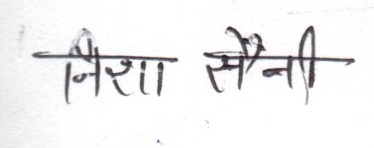 निशा सैनी